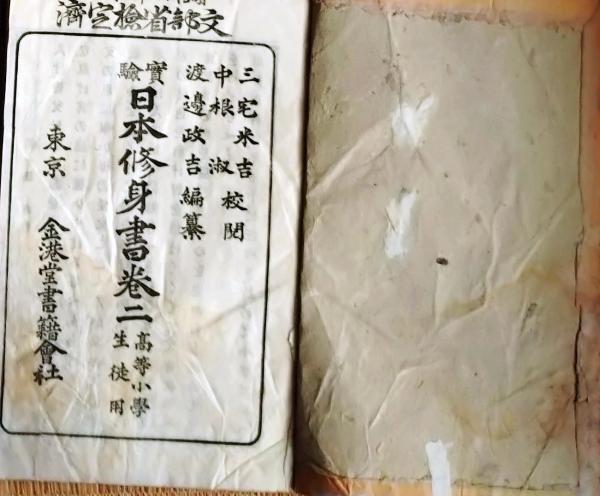 文部省檢定濟
三宅米吉
中根淑 校閲
渡邊政吉編纂
實驗
日本修身書卷二
高等小學
生徒用
東京 金港堂書籍會社